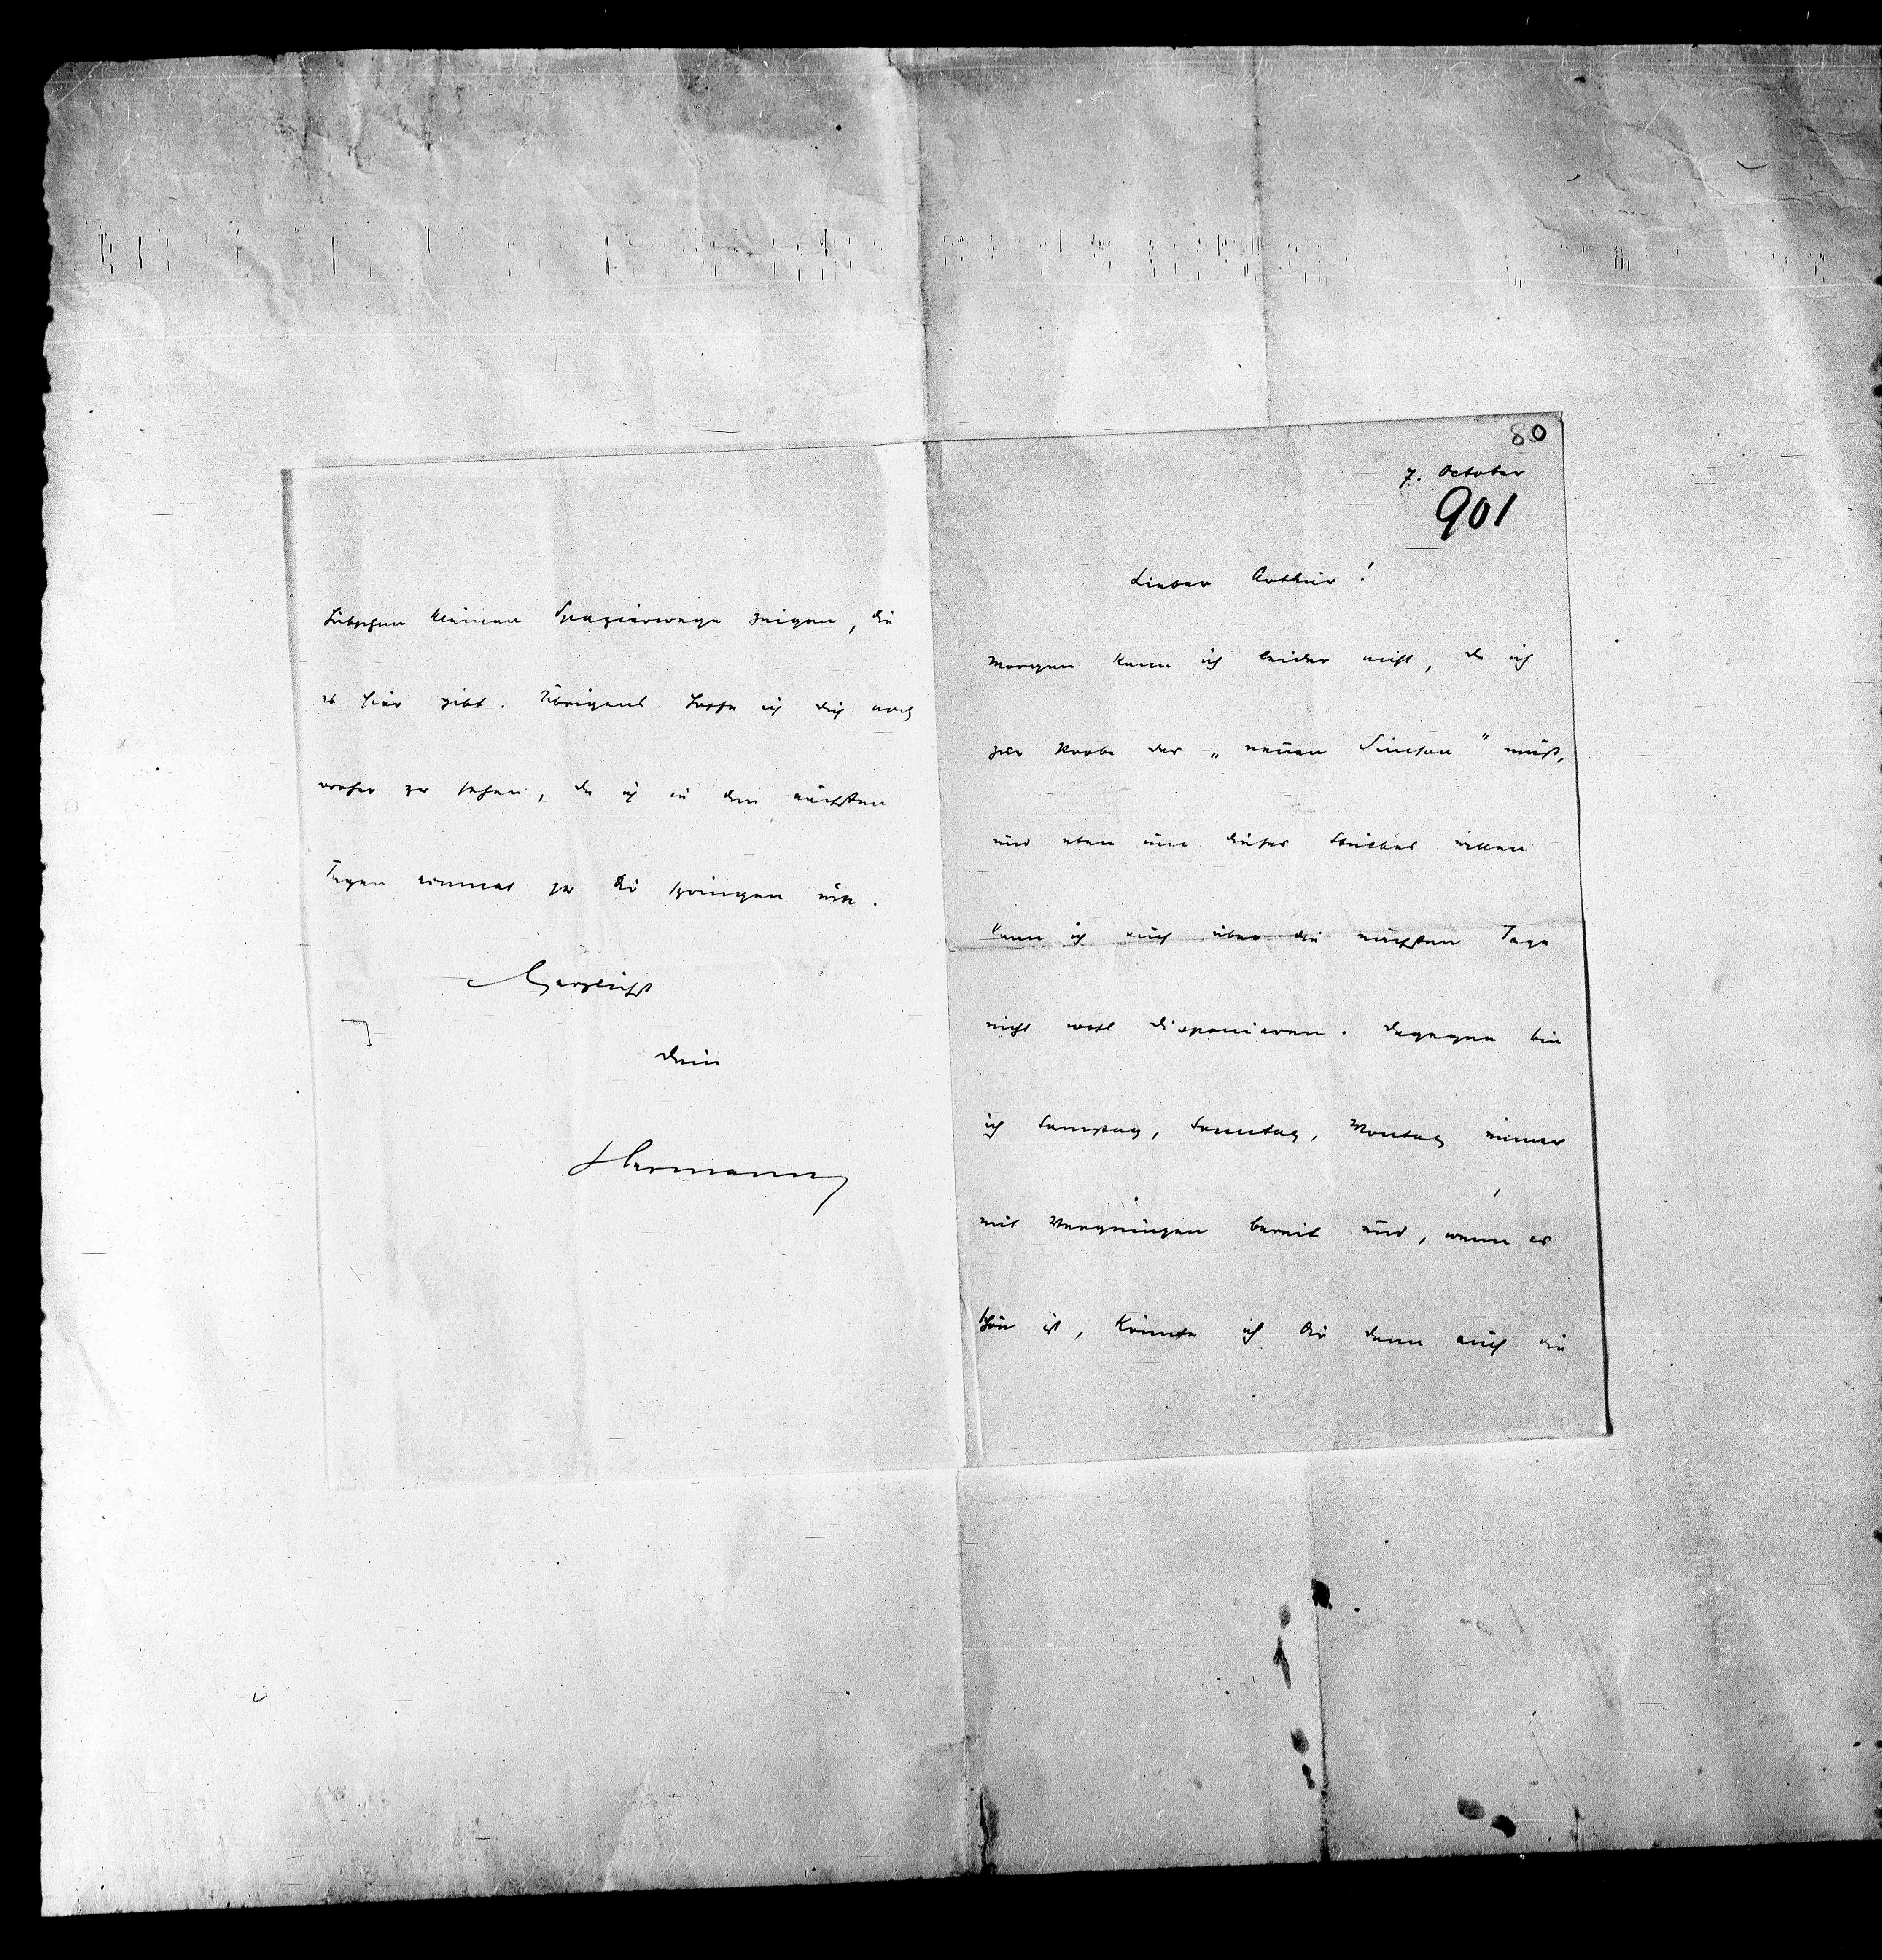 80
7. October
901
Lieber Arthur!
Morgen kann ich leider nicht, da ich
zur Probe der „neuen Simson" muß,
und eben um dieses Stückes willen
kann ich auch über die nächsten Tage
nicht wol disponieren. Dagegen bin
ich Samstag, Sonntag, Montag immer
mit Vergnügen bereit und, wenn es
schön ist, könnte ich Dir dann auch die
hübschen kleinen Spazierwege zeigen, die
es hier gibt. Übrigens hoffe ich Dich noch
vorher zu sehen, da ich in den nächsten
Tagen einmal zu Dir springen will.
Herzlichst
Dein
Hermann